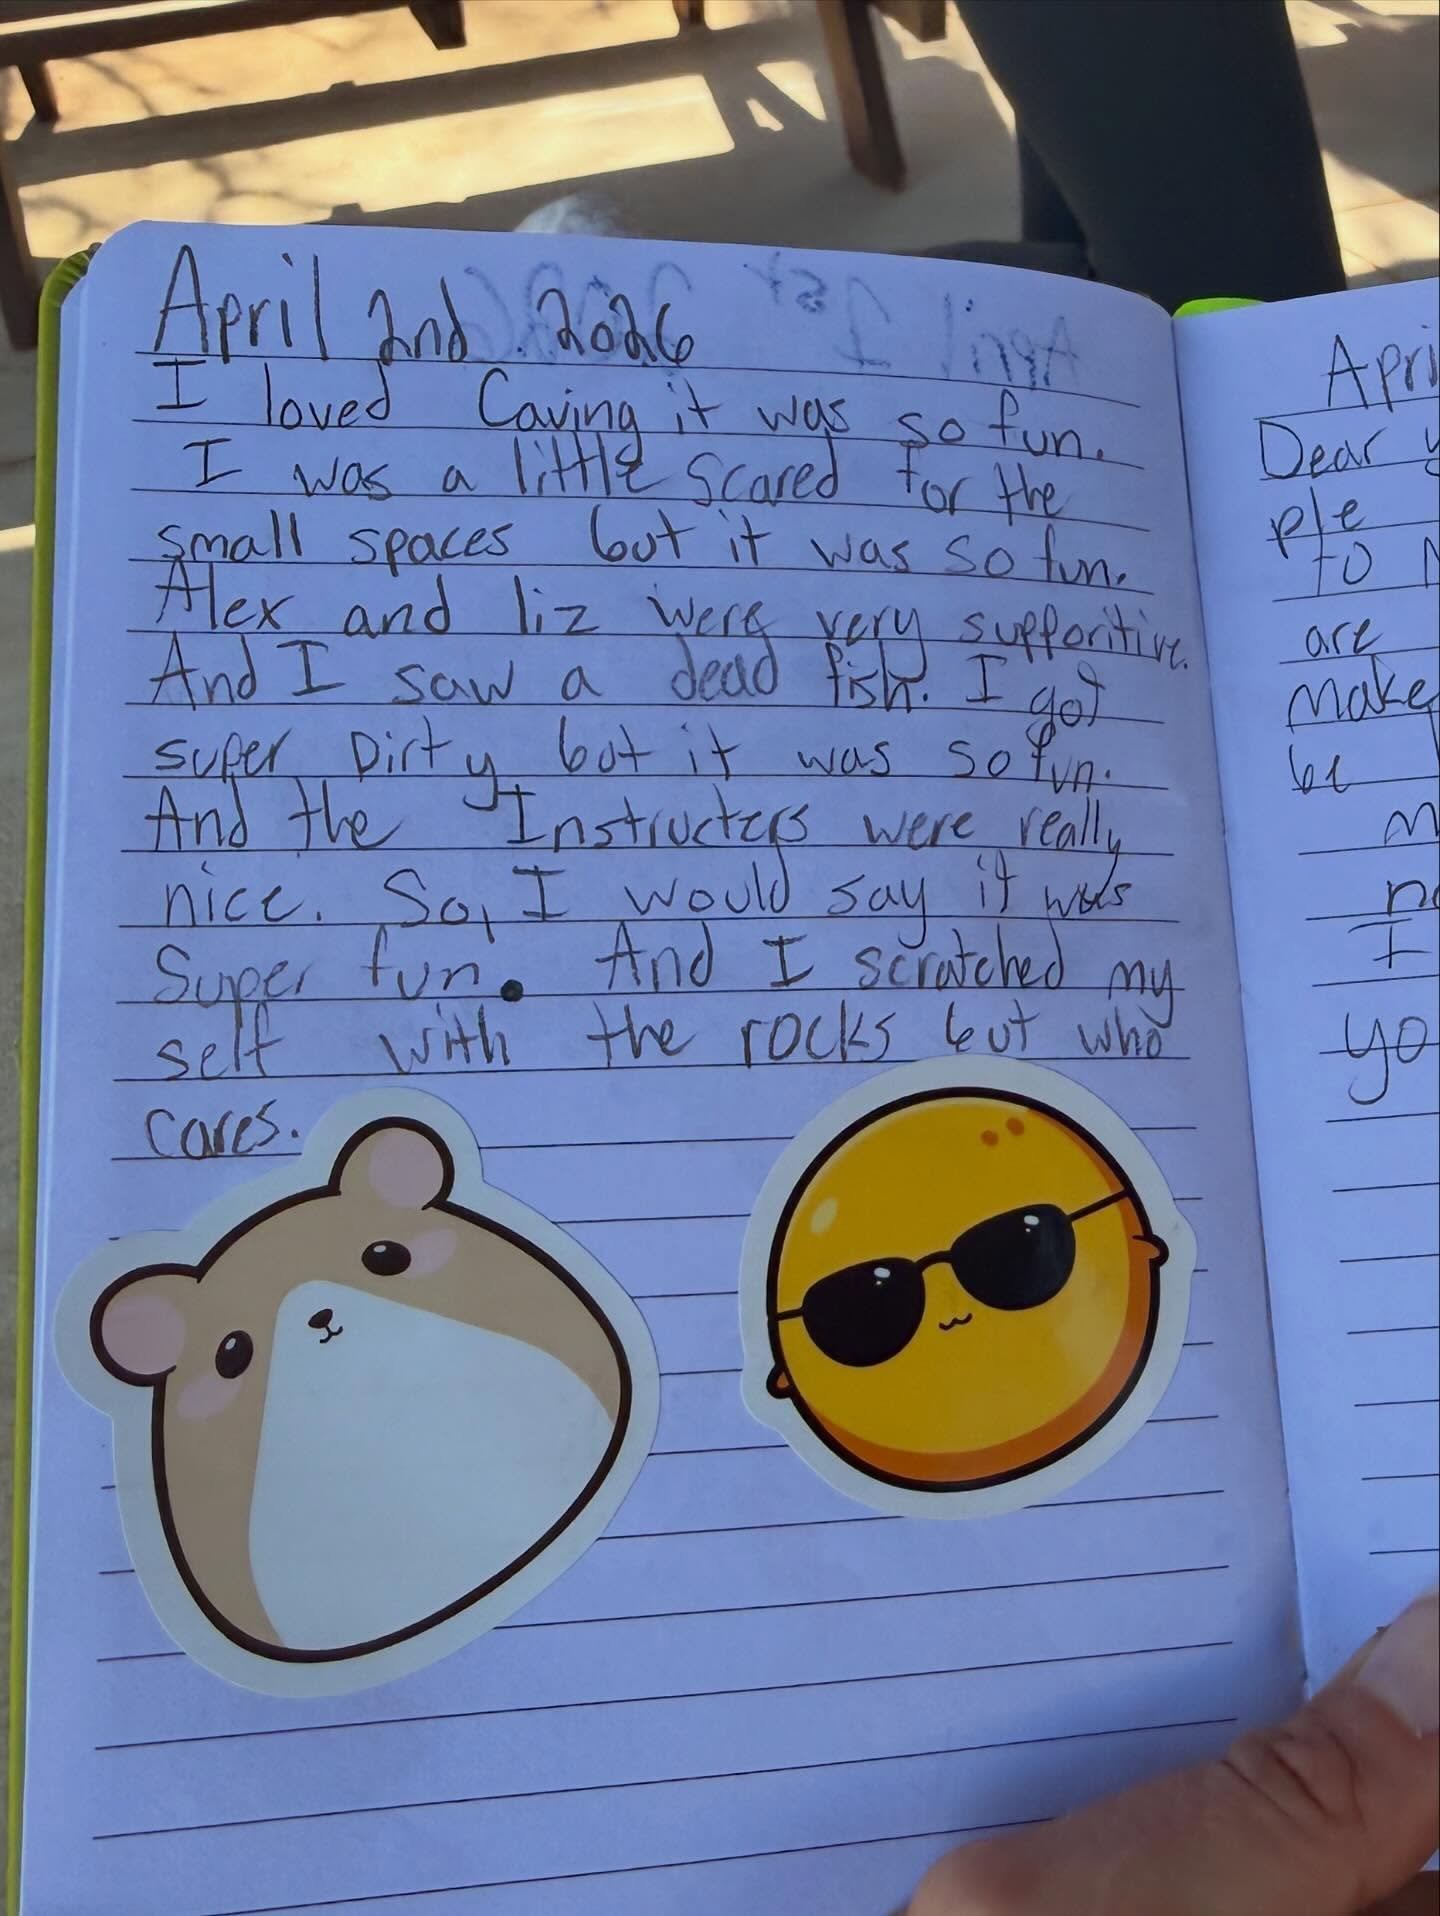 April 2nd 2026
I loved Caving it was so fun.
I was a little scared for the
small spaces but it was so fun.
Alex and liz were very supporitive.
And I saw a dead fish. I got
super Dirty but it was so fun.
And the Instructers were really
nice. So, I would say it was
Super fun. And I scratched my
self with the rocks but who
cares.
Apri
Dear y
ple
to
are
make
be
I
yo